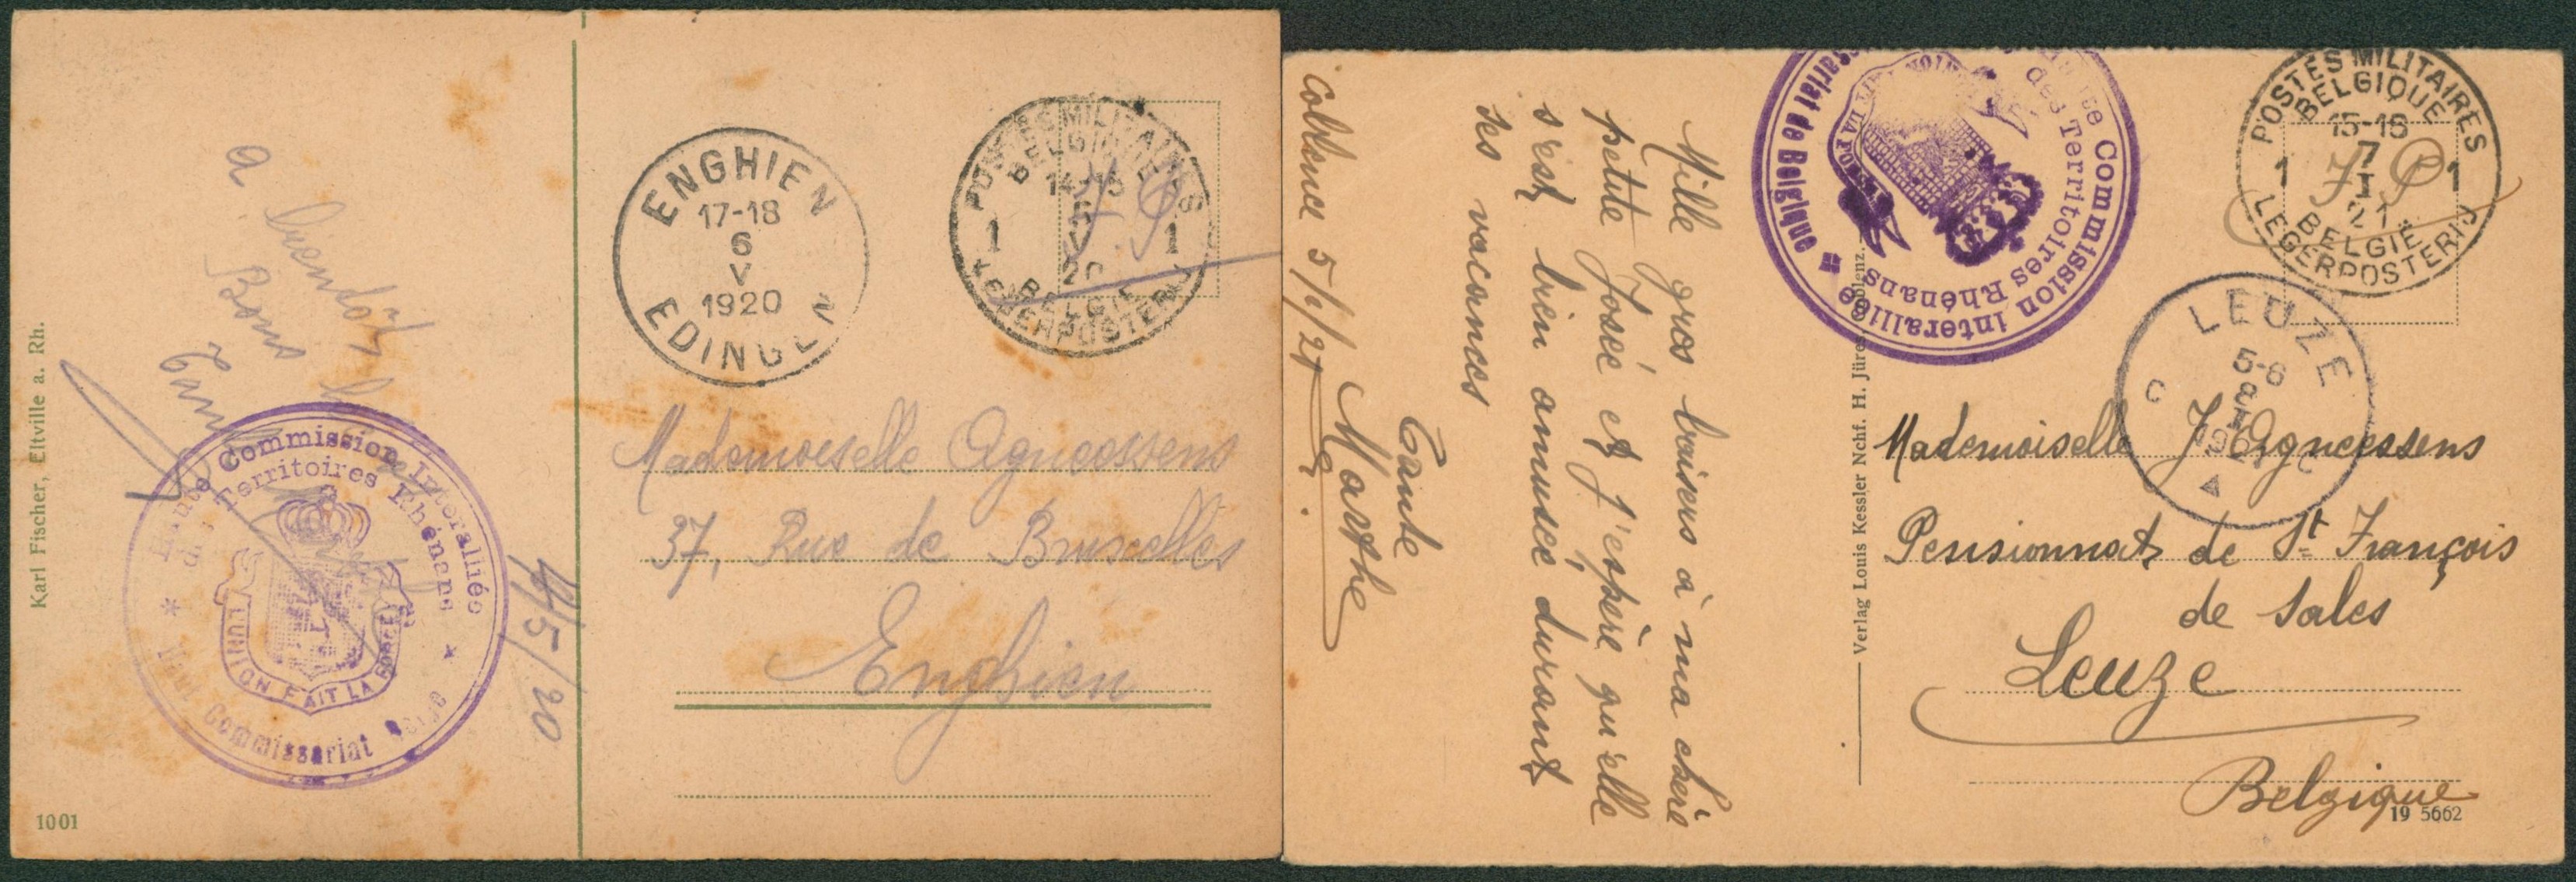 Karl Fischer, Eltville a. Rh.
1001
a bientôt
Bons
Haute Commission Interalliée
des Territoires Rhénans
L'UNION FAIT LA FORCE
Haut Commissariat Belge
4/5/20
ENGHIEN
17-18
6
V
1920
EDINGEN
POSTES MILITAIRES
BELGIQUE
14-15
5
V
20
1 1
BELGIË
LEGERPOSTERIJ
F. P.
Mademoiselle Agneessens
37, Rue de Bruxelles
Enghien
Coblence 5/1/21
Mille gros baisers à ma chère
petite Josée et j'espère qu'elle
s'est bien amusée durant
ses vacances
Tante
Marthe
Commission interalliée
des Territoires Rhénans
de Belgique
Verlag Louis Kessler Nchf. H. Jüres, Coblenz.
POSTES MILITAIRES
BELGIQUE
15-16
7
I
21
1 1
BELGIË
LEGERPOSTERIJ
F. P.
LEUZE
5-6
C
Mademoiselle J. Agneessens
Pensionnat de St François
de Sales
Leuze
Belgique
19 5662